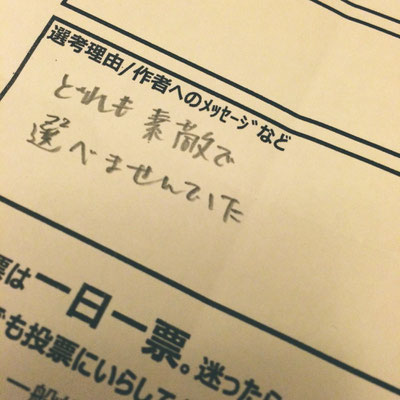 選考理由/作者へのメッセージなど
どれも素敵で
選べませんでした
票は一日一票。迷ったら
でも投票にいらして
一般